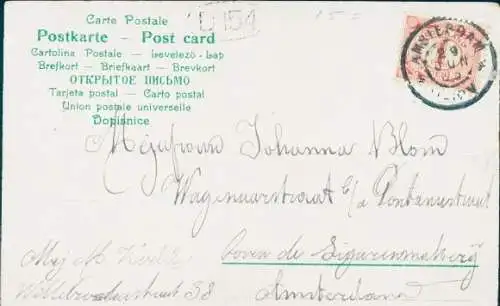 Carte Postale
Postkarte – Post card
Cartolina Postale – Levelező-Lap
Brefkort – Briefkaart – Brevkort
ОТКРЫТОЕ ПИСЬМО
Tarjeta postal – Carto postal
Union postale universelle
Dopisnice
D 154
15=
AMSTERDAM
Mejufrouw Johanna Blom
Wagenaarstraat h/a Pontanusstraat
Boven de Sigarenmakerij
Amsterdam
38